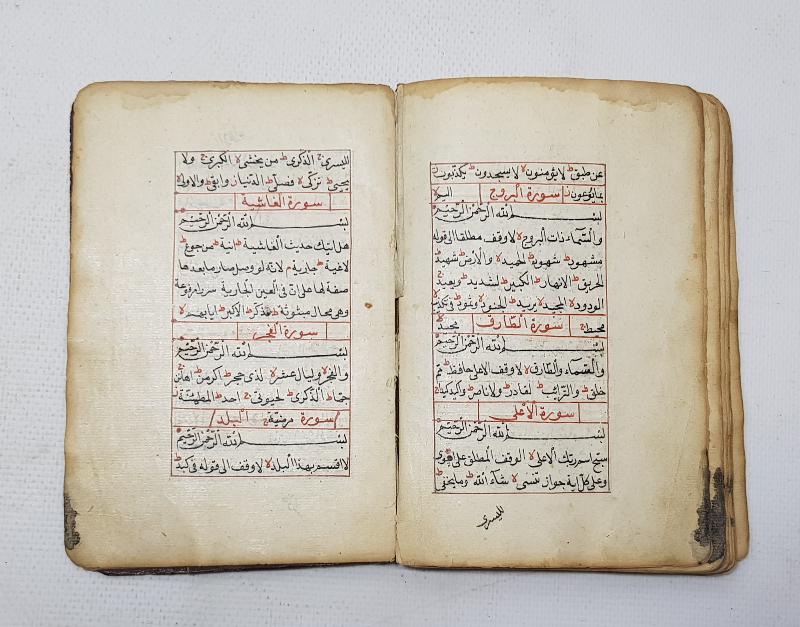 عن طبق ط لا يؤمنون لا لا يسجدون ط يكذبون ز
بما يوعون ز سورة البروج اليم لا
بسم الله الرحمن الرحيم
والسماء ذات البروج لا لا وقف مطلقا الى قوله
مشهود ط شهود ط الحميد لا والارض ط شهيد ط
الحريق ط الانهار ط الكبير ط لشديد ط ويعيد ج
الودود لا المجيد لا يريد ط الجنود لا وثمود ط في تكذيب
محيط ج سورة الطارق مجيد
بسم الله الرحمن الرحيم
والسماء والطارق لا لا وقف الا على حافظ ط مم
خلق ط والترائب ط لقادر ط ولا ناصر ط وكيد كيدا ج
سورة الاعلى
بسم الله الرحمن الرحيم
سبح اسم ربك الاعلى الوقف المطلق على
وعلى كل اية جواز تنسى لا شاء الله ط وما يخفى ط
لليسرى
لليسرى ج الذكرى ط من يخشى لا الكبرى ج ولا
يحيى ط تزكى لا فصلى ط الدنيا ز وابقى ط والاولى لا
سورة الغاشية
بسم الله الرحمن الرحيم
هل اتيك حديث الغاشية ط انية ط من جوع ط
لاغية ط جارية م لانه لو وصل صار ما بعدها
صفة لها على ان في العين الجارية سررا مرفوعة
وهي محال مبثوثة ط مذكر ط الاكبر ط ايابهم لا
سورة الفجر
بسم الله الرحمن الرحيم
والفجر وليال عشر لا لذي حجر ط اكرمن ط اهانن ج
جما ط الذكرى ط لحيوتي ج احد ط المطمئنة
سورة مرضية ج البلد
بسم الله الرحمن الرحيم
لا اقسم بهذا البلد لا لا وقف الى قوله في كبد ط